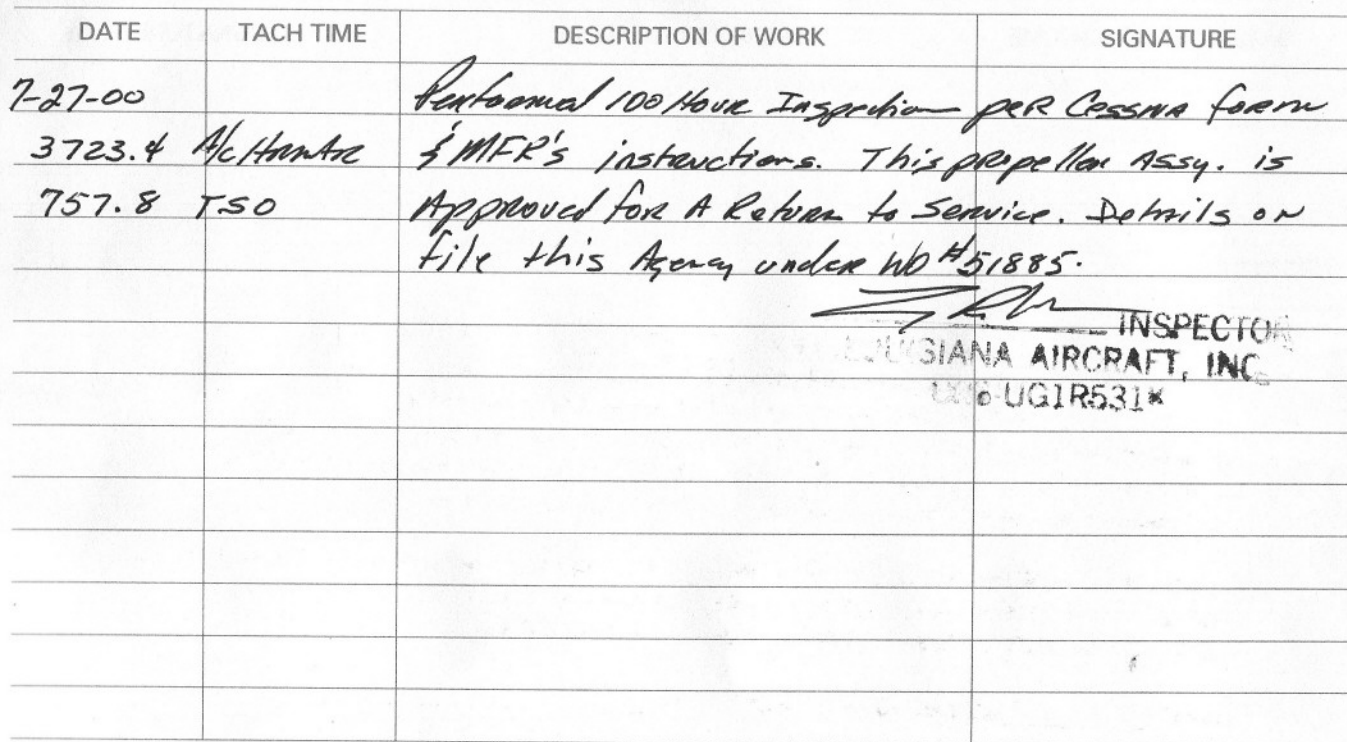 DATE TACH TIME DESCRIPTION OF WORK SIGNATURE
7-27-00 Performed 100 Hour Inspection per Cessna form
3723.4 A/c & MFR's instructions. This propeller Assy. is
757.8 TSO Approved for A Return to Service. Details on
file this Agency under WO #51885.
INSPECTOR
LOUISIANA AIRCRAFT, INC
UG1R531*